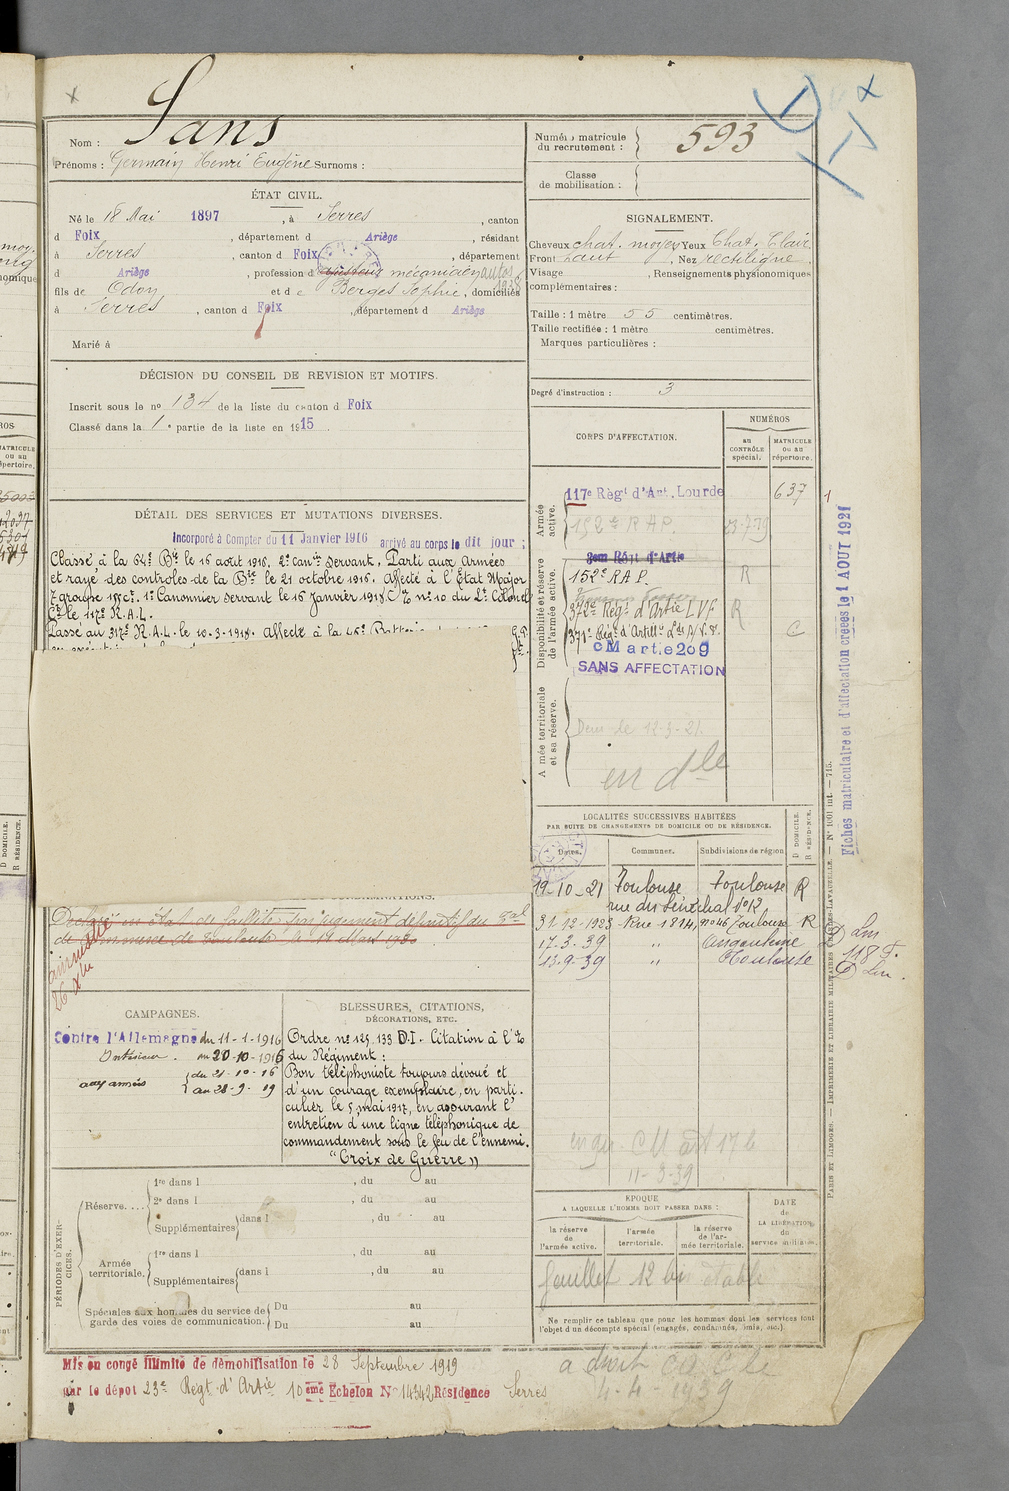 Sans
Nom :
Prénoms : Germain Henri Eugène Surnoms :
Numéro matricule du recrutement : 593
Classe de mobilisation :
ÉTAT CIVIL.
Né le 18 Mai 1897, à Serres, canton
d Foix, département d Ariège, résidant
à Serres, canton d Foix, département
d Ariège, profession d ajusteur mécanicien autos 1938
fils de Odon et de Berges Sophie, domiciliés
à Serres, canton d Foix, département d Ariège
Marié à
SIGNALEMENT.
Cheveux chat. moyen Yeux Chat. Clair
Front haut, Nez rectiligne.
Visage, Renseignements physionomiques
complémentaires :
Taille : 1 mètre 55 centimètres.
Taille rectifiée : 1 mètre centimètres.
Marques particulières :
Degré d'instruction : 3
DÉCISION DU CONSEIL DE REVISION ET MOTIFS.
Inscrit sous le nº 134 de la liste du canton d Foix
Classé dans la 1e partie de la liste en 1915.
DÉTAIL DES SERVICES ET MUTATIONS DIVERSES.
Incorporé à Compter du 11 Janvier 1916 arrivé au corps le dit jour ;
Classé à la 64e Bie le 16 août 1916. 2e Canier Servant. Parti aux Armées
et rayé des contrôles de la Bie le 21 octobre 1916. Affecté à l'État Major
7 groupe 155 c. 1e Canonnier servant le 16 Janvier 1918. nº 10 du Lt Colonel
Ct le 117e R.A.L.
Passé au 317e R.A.L. le 10-3-1918. Affecté à la 46e
CORPS D'AFFECTATION.
NUMÉROS
au CONTRÔLE spécial.
MATRICULE ou au répertoire.
Armée active.
117e Régt d'Art. Lourde 637
152e RAP
Disponibilité et réserve de l'armée active.
152e R.A.P. R
372e Régt d'Artie LVF R
371e Régt d'Artill
C
c M artie 209
SANS AFFECTATION
Armée territoriale et sa réserve.
12-3-21.
en dle
Fiches matriculaire et d'affectation créées le 1 AOUT 1921
LOCALITÉS SUCCESSIVES HABITÉES
PAR SUITE DE CHANGEMENTS DE DOMICILE OU DE RÉSIDENCE.
Dates. Communes. Subdivisions de région.
D DOMICILE. R RÉSIDENCE.
19-10-21 Toulouse Toulouse R
rue du Sénéchal nº12
31-12-1923 Rue 1814, nº46 Toulouse R
17.3.39 " Angoulême
13-9-39 " Toulouse
CONDAMNATIONS.
Déclaré en état de faillite par jugement définitif du Bal
de Commerce de Toulouse le 17 Mars 1930
amnistié
CAMPAGNES.
Contre l'Allemagne du 11-1-1916
Intérieur. au 20-10-1916
aux armées du 21-10-16
au 28-9-19
BLESSURES, CITATIONS,
DÉCORATIONS, ETC.
Ordre nº 129. 133 D.I. Citation à l'O
du Régiment :
Bon téléphoniste toujours dévoué et
d'un courage exemplaire, en parti-
culier le 5 mai 1917, en assurant l'
entretien d'une ligne téléphonique de
commandement sous le feu de l'ennemi.
"Croix de Guerre"
11-3-39
PÉRIODES D'EXERCICES.
Réserve....
1re dans l, du au
2e dans l, du au
Supplémentaires dans l, du au
Armée territoriale.
1re dans l, du au
Supplémentaires dans l, du au
Spéciales aux hommes du service de garde des voies de communication.
Du au
Du au
ÉPOQUE
A LAQUELLE L'HOMME DOIT PASSER DANS :
la réserve de l'armée active.
l'armée territoriale.
la réserve de l'armée territoriale.
DATE de LA LIBÉRATION du service militaire.
feuillet 12 bis établi
Ne remplir ce tableau que pour les hommes dont les services font
l'objet d'un décompte spécial (engagés, condamnés, omis, etc.).
PARIS ET LIMOGES. — IMPRIMERIE ET LIBRAIRIE MILITAIRES CHARLES-LAVAUZELLE. — Nº 1001 int. — 715.
Mis en congé illimité de démobilisation le 28 Septembre 1919
par le dépôt 23e Regt d'Artie 10 ème Echelon Nº 14342 Résidence Serres
4-4-1939